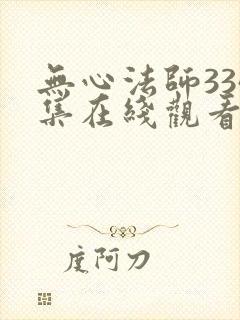 無心法師33
集在綫觀看
度阿刀